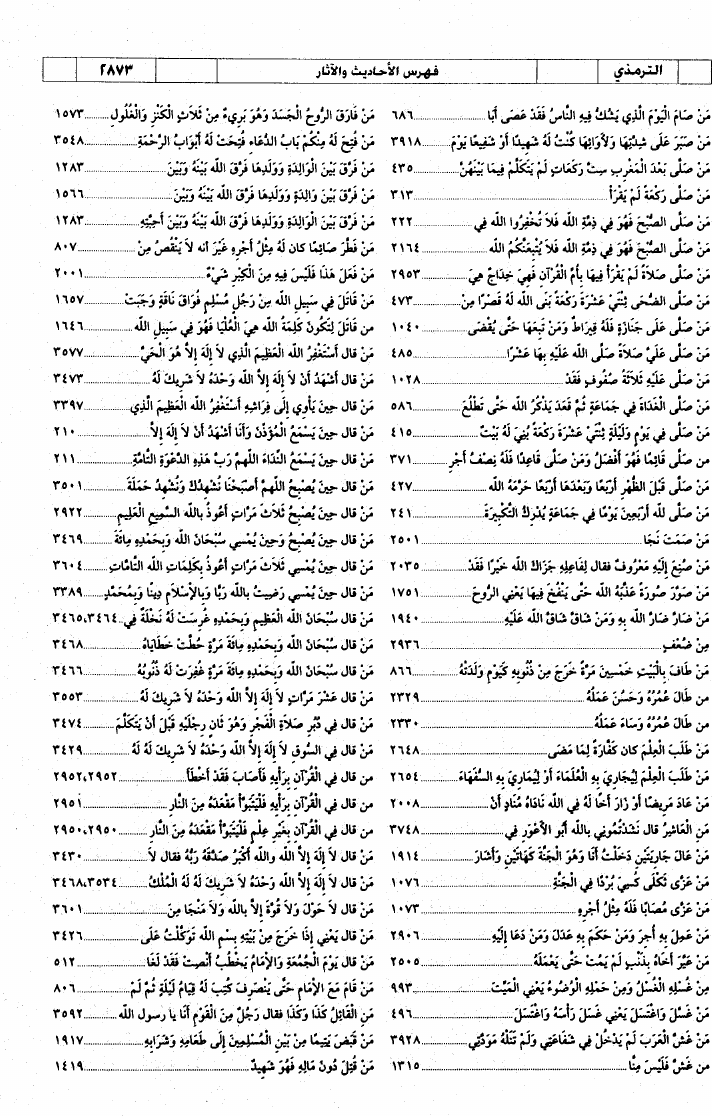 الترمذي
فهرس الأحاديث والآثار
٢٨٧٣
مَنْ صَامَ الْيَوْمَ الَّذِي يَشُكُّ فِيهِ النَّاسُ فَقَدْ عَصَى أَبَا ........ ٦٨٦
مَنْ صَبَرَ عَلَى شِدَّتِهَا وَلَأْوَائِهَا كُنْتُ لَهُ شَهِيدًا أَوْ شَفِيعًا يَوْمَ ........ ٣٩١٨
مَنْ صَلَّى بَعْدَ الْمَغْرِبِ سِتَّ رَكَعَاتٍ لَمْ يَتَكَلَّمْ فِيمَا بَيْنَهُنَّ ........ ٤٣٥
مَنْ صَلَّى رَكْعَةً لَمْ يَقْرَأْ ........ ٣١٣
مَنْ صَلَّى الصُّبْحَ فَهُوَ فِي ذِمَّةِ الله فَلَا تُخْفِرُوا الله فِي ........ ٢٢٢
مَنْ صَلَّى الصُّبْحَ فَهُوَ فِي ذِمَّةِ الله فَلَا يُتْبِعَنَّكُمُ الله ........ ٢١٦٤
مَنْ صَلَّى صَلَاةً لَمْ يَقْرَأْ فِيهَا بِأُمِّ الْقُرْآنِ فَهِيَ خِدَاجٌ هِيَ ........ ٢٩٥٣
مَنْ صَلَّى الضُّحَى ثِنْتَيْ عَشْرَةَ رَكْعَةً بَنَى الله لَهُ قَصْرًا مِنْ ........ ٤٧٣
مَنْ صَلَّى عَلَى جَنَازَةٍ فَلَهُ قِيرَاطٌ وَمَنْ تَبِعَهَا حَتَّى يُقْضَى ........ ١٠٤٠
مَنْ صَلَّى عَلَيَّ صَلَاةً صَلَّى الله عَلَيْهِ بِهَا عَشْرًا ........ ٤٨٥
مَنْ صَلَّى عَلَيْهِ ثَلَاثَةُ صُفُوفٍ فَقَدْ ........ ١٠٢٨
مَنْ صَلَّى الْغَدَاةَ فِي جَمَاعَةٍ ثُمَّ قَعَدَ يَذْكُرُ الله حَتَّى تَطْلُعَ ........ ٥٨٦
مَنْ صَلَّى فِي يَوْمٍ وَلَيْلَةٍ ثِنْتَيْ عَشْرَةَ رَكْعَةً بُنِيَ لَهُ بَيْتٌ ........ ٤١٥
من صَلَّى قَائِمًا فَهُوَ أَفْضَلُ وَمَنْ صَلَّى قَاعِدًا فَلَهُ نِصْفُ أَجْرِ ........ ٣٧١
مَنْ صَلَّى قَبْلَ الظُّهْرِ أَرْبَعًا وَبَعْدَهَا أَرْبَعًا حَرَّمَهُ الله ........ ٤٢٧
مَنْ صَلَّى لله أَرْبَعِينَ يَوْمًا فِي جَمَاعَةٍ يُدْرِكُ التَّكْبِيرَةَ ........ ٢٤١
مَنْ صَمَتَ نَجَا ........ ٢٥٠١
مَنْ صُنِعَ إِلَيْهِ مَعْرُوفٌ فقال لِفَاعِلِهِ جَزَاكَ الله خَيْرًا فَقَدْ ........ ٢٠٣٥
مَنْ صَوَّرَ صُورَةً عَذَّبَهُ الله حَتَّى يَنْفُخَ فِيهَا يَعْنِي الرُّوحَ ........ ١٧٥١
مَنْ ضَارَّ ضَارَّ الله بِهِ وَمَنْ شَاقَّ شَاقَّ الله عَلَيْهِ ........ ١٩٤٠
مِنْ ضُعْفٍ ........ ٢٩٣٦
مَنْ طَافَ بِالْبَيْتِ خَمْسِينَ مَرَّةً خَرَجَ مِنْ ذُنُوبِهِ كَيَوْمِ وَلَدَتْهُ ........ ٨٦٦
من طَالَ عُمُرُهُ وَحَسُنَ عَمَلُهُ ........ ٢٣٢٩
من طَالَ عُمُرُهُ وَسَاءَ عَمَلُهُ ........ ٢٣٣٠
مَنْ طَلَبَ الْعِلْمَ كان كَفَّارَةً لِمَا مَضَى ........ ٢٦٤٨
مَنْ طَلَبَ الْعِلْمَ لِيُجَارِيَ بِهِ الْعُلَمَاءَ أَوْ لِيُمَارِيَ بِهِ السُّفَهَاءَ ........ ٢٦٥٤
مَنْ عَادَ مَرِيضًا أَوْ زَارَ أَخًا لَهُ فِي الله نَادَاهُ مُنَادٍ أَنْ ........ ٢٠٠٨
مَنِ الْعَاشِرُ قال نَشَدْتُمُونِي بالله أَبُو الأَعْوَرِ فِي ........ ٣٧٤٨
مَنْ عَالَ جَارِيَتَيْنِ دَخَلْتُ أَنَا وَهُوَ الْجَنَّةَ كَهَاتَيْنِ وَأَشَارَ ........ ١٩١٤
مَنْ عَزَّى ثَكْلَى كُسِيَ بُرْدًا فِي الْجَنَّةِ ........ ١٠٧٦
مَنْ عَزَّى مُصَابًا فَلَهُ مِثْلُ أَجْرِهِ ........ ١٠٧٣
مَنْ عَمِلَ بِهِ أُجِرَ وَمَنْ حَكَمَ بِهِ عَدَلَ وَمَنْ دَعَا إِلَيْهِ ........ ٢٩٠٦
مَنْ عَيَّرَ أَخَاهُ بِذَنْبٍ لَمْ يَمُتْ حَتَّى يَعْمَلَهُ ........ ٢٥٠٥
مِنْ غُسْلِهِ الْغُسْلُ وَمِنْ حَمْلِهِ الْوُضُوءُ يَعْنِي الْمَيِّتَ ........ ٩٩٣
مَنْ غَسَّلَ وَاغْتَسَلَ يَعْنِي غَسَلَ رَأْسَهُ وَاغْتَسَلَ ........ ٤٩٦
مَنْ غَشَّ الْعَرَبَ لَمْ يَدْخُلْ فِي شَفَاعَتِي وَلَمْ تَنَلْهُ مَوَدَّتِي ........ ٣٩٢٨
من غَشَّ فَلَيْسَ مِنَّا ........ ١٣١٥
مَنْ فَارَقَ الرُّوحُ الْجَسَدَ وَهُوَ بَرِيءٌ مِنْ ثَلَاثٍ الْكَنْزِ وَالْغُلُولِ ........ ١٥٧٣
مَنْ فُتِحَ لَهُ مِنْكُمْ بَابُ الدُّعَاءِ فُتِحَتْ لَهُ أَبْوَابُ الرَّحْمَةِ ........ ٣٥٤٨
مَنْ فَرَّقَ بَيْنَ الْوَالِدَةِ وَوَلَدِهَا فَرَّقَ الله بَيْنَهُ وَبَيْنَ ........ ١٢٨٣
مَنْ فَرَّقَ بَيْنَ وَالِدَةٍ وَوَلَدِهَا فَرَّقَ الله بَيْنَهُ وَبَيْنَ ........ ١٥٦٦
مَنْ فَرَّقَ بَيْنَ الْوَالِدَةِ وَوَلَدِهَا فَرَّقَ الله بَيْنَهُ وَبَيْنَ أَحِبَّتِهِ ........ ١٢٨٣
مَنْ فَطَّرَ صَائِمًا كان لَهُ مِثْلُ أَجْرِهِ غَيْرَ أنه لَا يَنْقُصُ مِنْ ........ ٨٠٧
مَنْ فَعَلَ هَذَا فَلَيْسَ فِيهِ مِنَ الْكِبْرِ شَيْءٌ ........ ٢٠٠١
مَنْ قَاتَلَ فِي سَبِيلِ الله مِنْ رَجُلٍ مُسْلِمٍ فُوَاقَ نَاقَةٍ وَجَبَتْ ........ ١٦٥٧
من قَاتَلَ لِتَكُونَ كَلِمَةُ الله هِيَ الْعُلْيَا فَهُوَ فِي سَبِيلِ الله ........ ١٦٤٦
مَنْ قال أَسْتَغْفِرُ الله الْعَظِيمَ الَّذِي لَا إِلَهَ إِلَّا هُوَ الْحَيَّ ........ ٣٥٧٧
مَنْ قال أَشْهَدُ أَنْ لَا إِلَهَ إِلَّا الله وَحْدَهُ لَا شَرِيكَ لَهُ ........ ٣٤٧٣
مَنْ قال حِينَ يَأْوِي إِلَى فِرَاشِهِ أَسْتَغْفِرُ الله الْعَظِيمَ الَّذِي ........ ٣٣٩٧
مَنْ قال حِينَ يَسْمَعُ الْمُؤَذِّنَ وَأَنَا أَشْهَدُ أَنْ لَا إِلَهَ إِلَّا ........ ٢١٠
مَنْ قال حِينَ يَسْمَعُ النِّدَاءَ اللَّهمَّ رَبَّ هَذِهِ الدَّعْوَةِ التَّامَّةِ ........ ٢١١
مَنْ قال حِينَ يُصْبِحُ اللَّهمَّ أَصْبَحْنَا نُشْهِدُكَ وَنُشْهِدُ حَمَلَةَ ........ ٣٥٠١
مَنْ قال حِينَ يُصْبِحُ ثَلَاثَ مَرَّاتٍ أَعُوذُ بالله السَّمِيعِ الْعَلِيمِ ........ ٢٩٢٢
مَنْ قال حِينَ يُصْبِحُ وَحِينَ يُمْسِي سُبْحَانَ الله وَبِحَمْدِهِ مِائَةَ ........ ٣٤٦٩
مَنْ قال حِينَ يُمْسِي ثَلَاثَ مَرَّاتٍ أَعُوذُ بِكَلِمَاتِ الله التَّامَّاتِ ........ ٣٦٠٤
مَنْ قال حِينَ يُمْسِي رَضِيتُ بالله رَبًّا وَبِالْإِسْلَامِ دِينًا وَبِمُحَمَّدٍ ........ ٣٣٨٩
مَنْ قال سُبْحَانَ الله الْعَظِيمِ وَبِحَمْدِهِ غُرِسَتْ لَهُ نَخْلَةٌ فِي .. ٣٤٦٥،٣٤٦٤
مَنْ قال سُبْحَانَ الله وَبِحَمْدِهِ مِائَةَ مَرَّةٍ حُطَّتْ خَطَايَاهُ ........ ٣٤٦٨
مَنْ قال سُبْحَانَ الله وَبِحَمْدِهِ مِائَةَ مَرَّةٍ غُفِرَتْ لَهُ ذُنُوبُهُ ........ ٣٤٦٦
مَنْ قال عَشْرَ مَرَّاتٍ لَا إِلَهَ إِلَّا الله وَحْدَهُ لَا شَرِيكَ لَهُ ........ ٣٥٥٣
مَنْ قال فِي دُبُرِ صَلَاةِ الْفَجْرِ وَهُوَ ثَانٍ رِجْلَيْهِ قَبْلَ أَنْ يَتَكَلَّمَ ........ ٣٤٧٤
مَنْ قال فِي السُّوقِ لَا إِلَهَ إِلَّا الله وَحْدَهُ لَا شَرِيكَ لَهُ لَهُ ........ ٣٤٢٩
من قال فِي الْقُرْآنِ بِرَأْيِهِ فَأَصَابَ فَقَدْ أَخْطَأَ ........ ٢٩٥٢،٢٩٥٢
من قال فِي الْقُرْآنِ بِرَأْيِهِ فَلْيَتَبَوَّأْ مَقْعَدَهُ مِنَ النَّارِ ........ ٢٩٥١
من قال فِي الْقُرْآنِ بِغَيْرِ عِلْمٍ فَلْيَتَبَوَّأْ مَقْعَدَهُ مِنَ النَّارِ ........ ٢٩٥٠،٢٩٥٠
مَنْ قال لَا إِلَهَ إِلَّا الله والله أَكْبَرُ صَدَّقَهُ رَبُّهُ فقال لَا ........ ٣٤٣٠
مَنْ قال لَا إِلَهَ إِلَّا الله وَحْدَهُ لَا شَرِيكَ لَهُ لَهُ الْمُلْكُ ........ ٣٤٦٨،٣٥٣٤
مَنْ قال لَا حَوْلَ وَلَا قُوَّةَ إِلَّا بالله وَلَا مَنْجَا مِنَ ........ ٣٦٠١
مَنْ قال يَعْنِي إِذَا خَرَجَ مِنْ بَيْتِهِ بِسْمِ الله تَوَكَّلْتُ عَلَى ........ ٣٤٢٦
مَنْ قال يَوْمَ الْجُمُعَةِ وَالْإِمَامُ يَخْطُبُ أَنْصِتْ فَقَدْ لَغَا ........ ٥١٢
مَنْ قَامَ مَعَ الْإِمَامِ حَتَّى يَنْصَرِفَ كُتِبَ لَهُ قِيَامُ لَيْلَةٍ ثُمَّ لَمْ ........ ٨٠٦
مَنِ الْقَائِلُ كَذَا وَكَذَا فقال رَجُلٌ مِنَ الْقَوْمِ أَنَا يا رسول الله ........ ٣٥٩٢
مَنْ قَبَضَ يَتِيمًا مِنْ بَيْنِ الْمُسْلِمِينَ إِلَى طَعَامِهِ وَشَرَابِهِ ........ ١٩١٧
مَنْ قُتِلَ دُونَ مَالِهِ فَهُوَ شَهِيدٌ ........ ١٤١٩